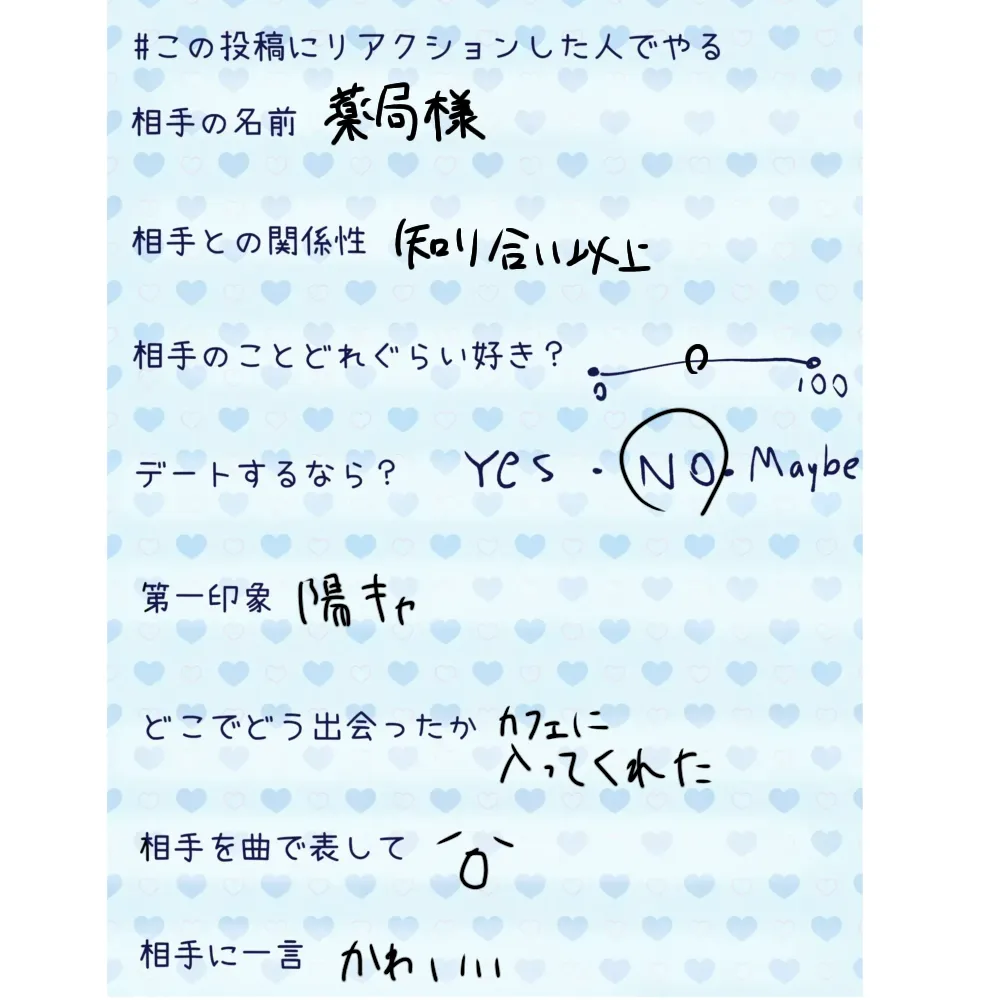 #この投稿にリアクションした人でやる
相手の名前 薬局様
相手との関係性 知り合い以上
相手のことどれぐらい好き？ 0 100
デートするなら？ Yes・NO・Maybe
第一印象 陽キャ
どこでどう出会ったか カフェに
入ってくれた
相手を曲で表して
相手に一言 かわいいい